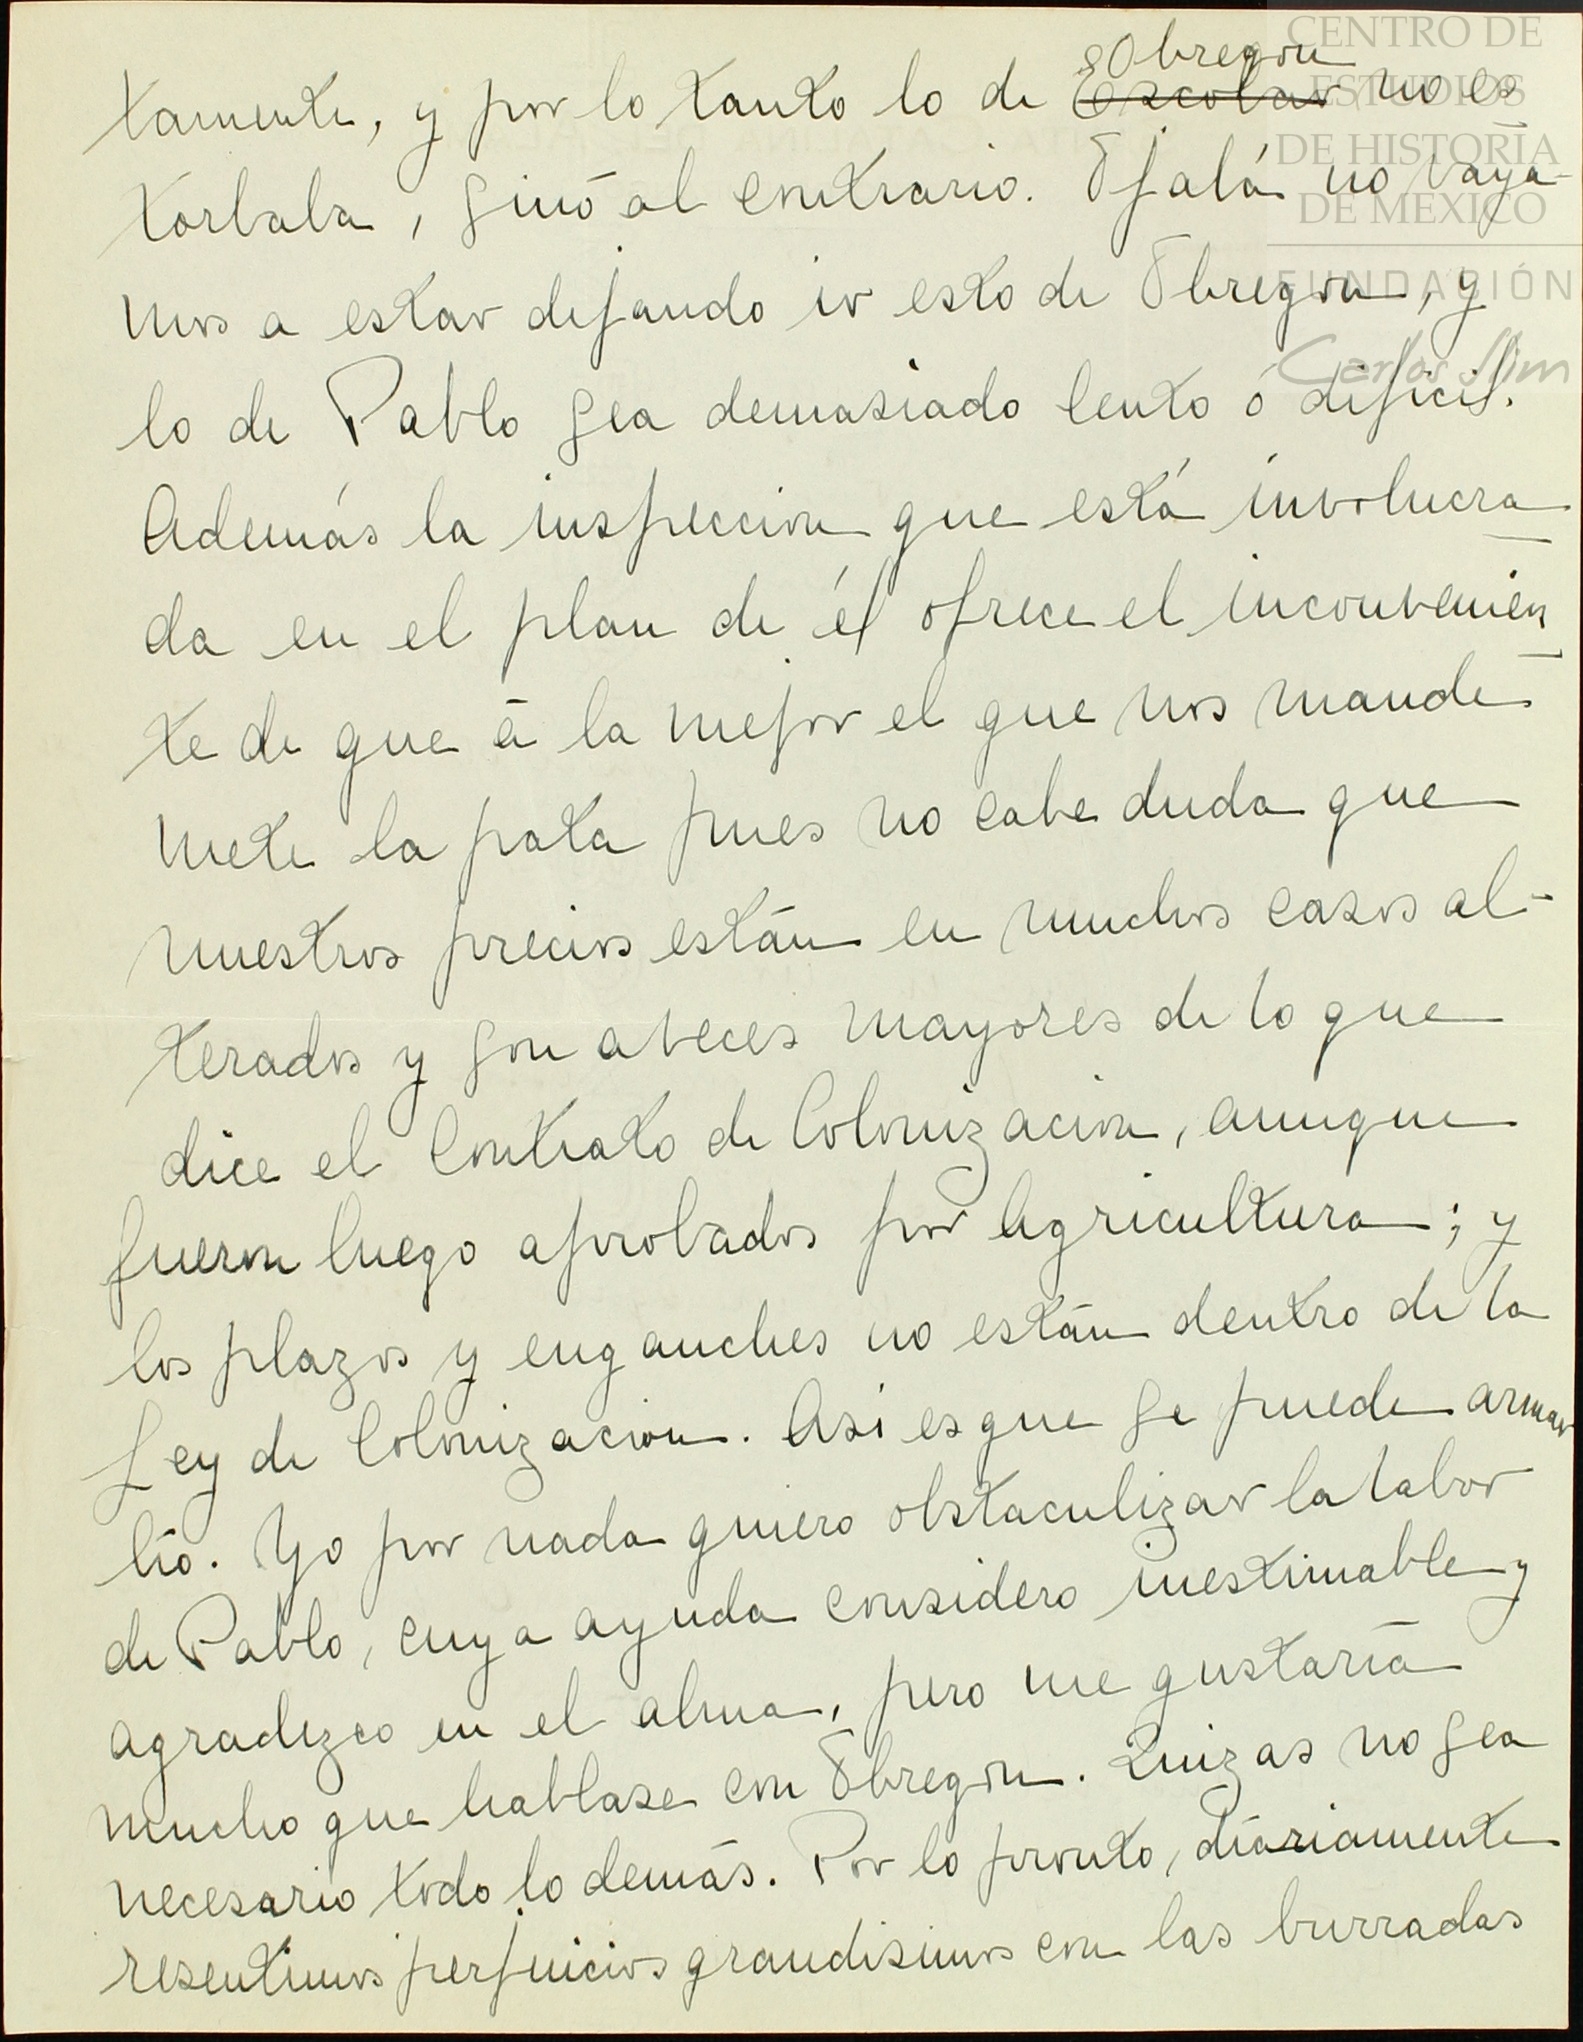 CENTRO DE
ESTUDIOS
DE HISTORIA
DE MEXICO
FUNDACIÓN
Carlos Slim
Obregon
tamente, y por lo tanto lo de Escobar no es
torbaba, sinó al contrario. Ojalá no vaya-
mos a estar dejando ir esto de Obregon, y
lo de Pablo sea demasiado lento ó dificil.
Además la inspeccion que está involucra
da en el plan de él ofrece el inconvenien
te de que á la mejor el que nos manden
mete la pata pues no cabe duda que
nuestros precios están en muchos casos al-
terados y son a veces mayores de lo que
dice el Contrato de Colonizacion, aunque
fueron luego aprobados por Agricultura; y
los plazos y enganches no están dentro de la
Ley de Colonizacion. Asi es que se puede armar
lío. Yo por nada quiero obstaculizar la labor
de Pablo, cuya ayuda considero inestimable y
agradezco en el alma, pero me gustaría
mucho que hablase con Obregon. Quizas no sea
necesario todo lo demás. Por lo pronto, diariamente
resentimos perjuicios grandisimos con las burradas